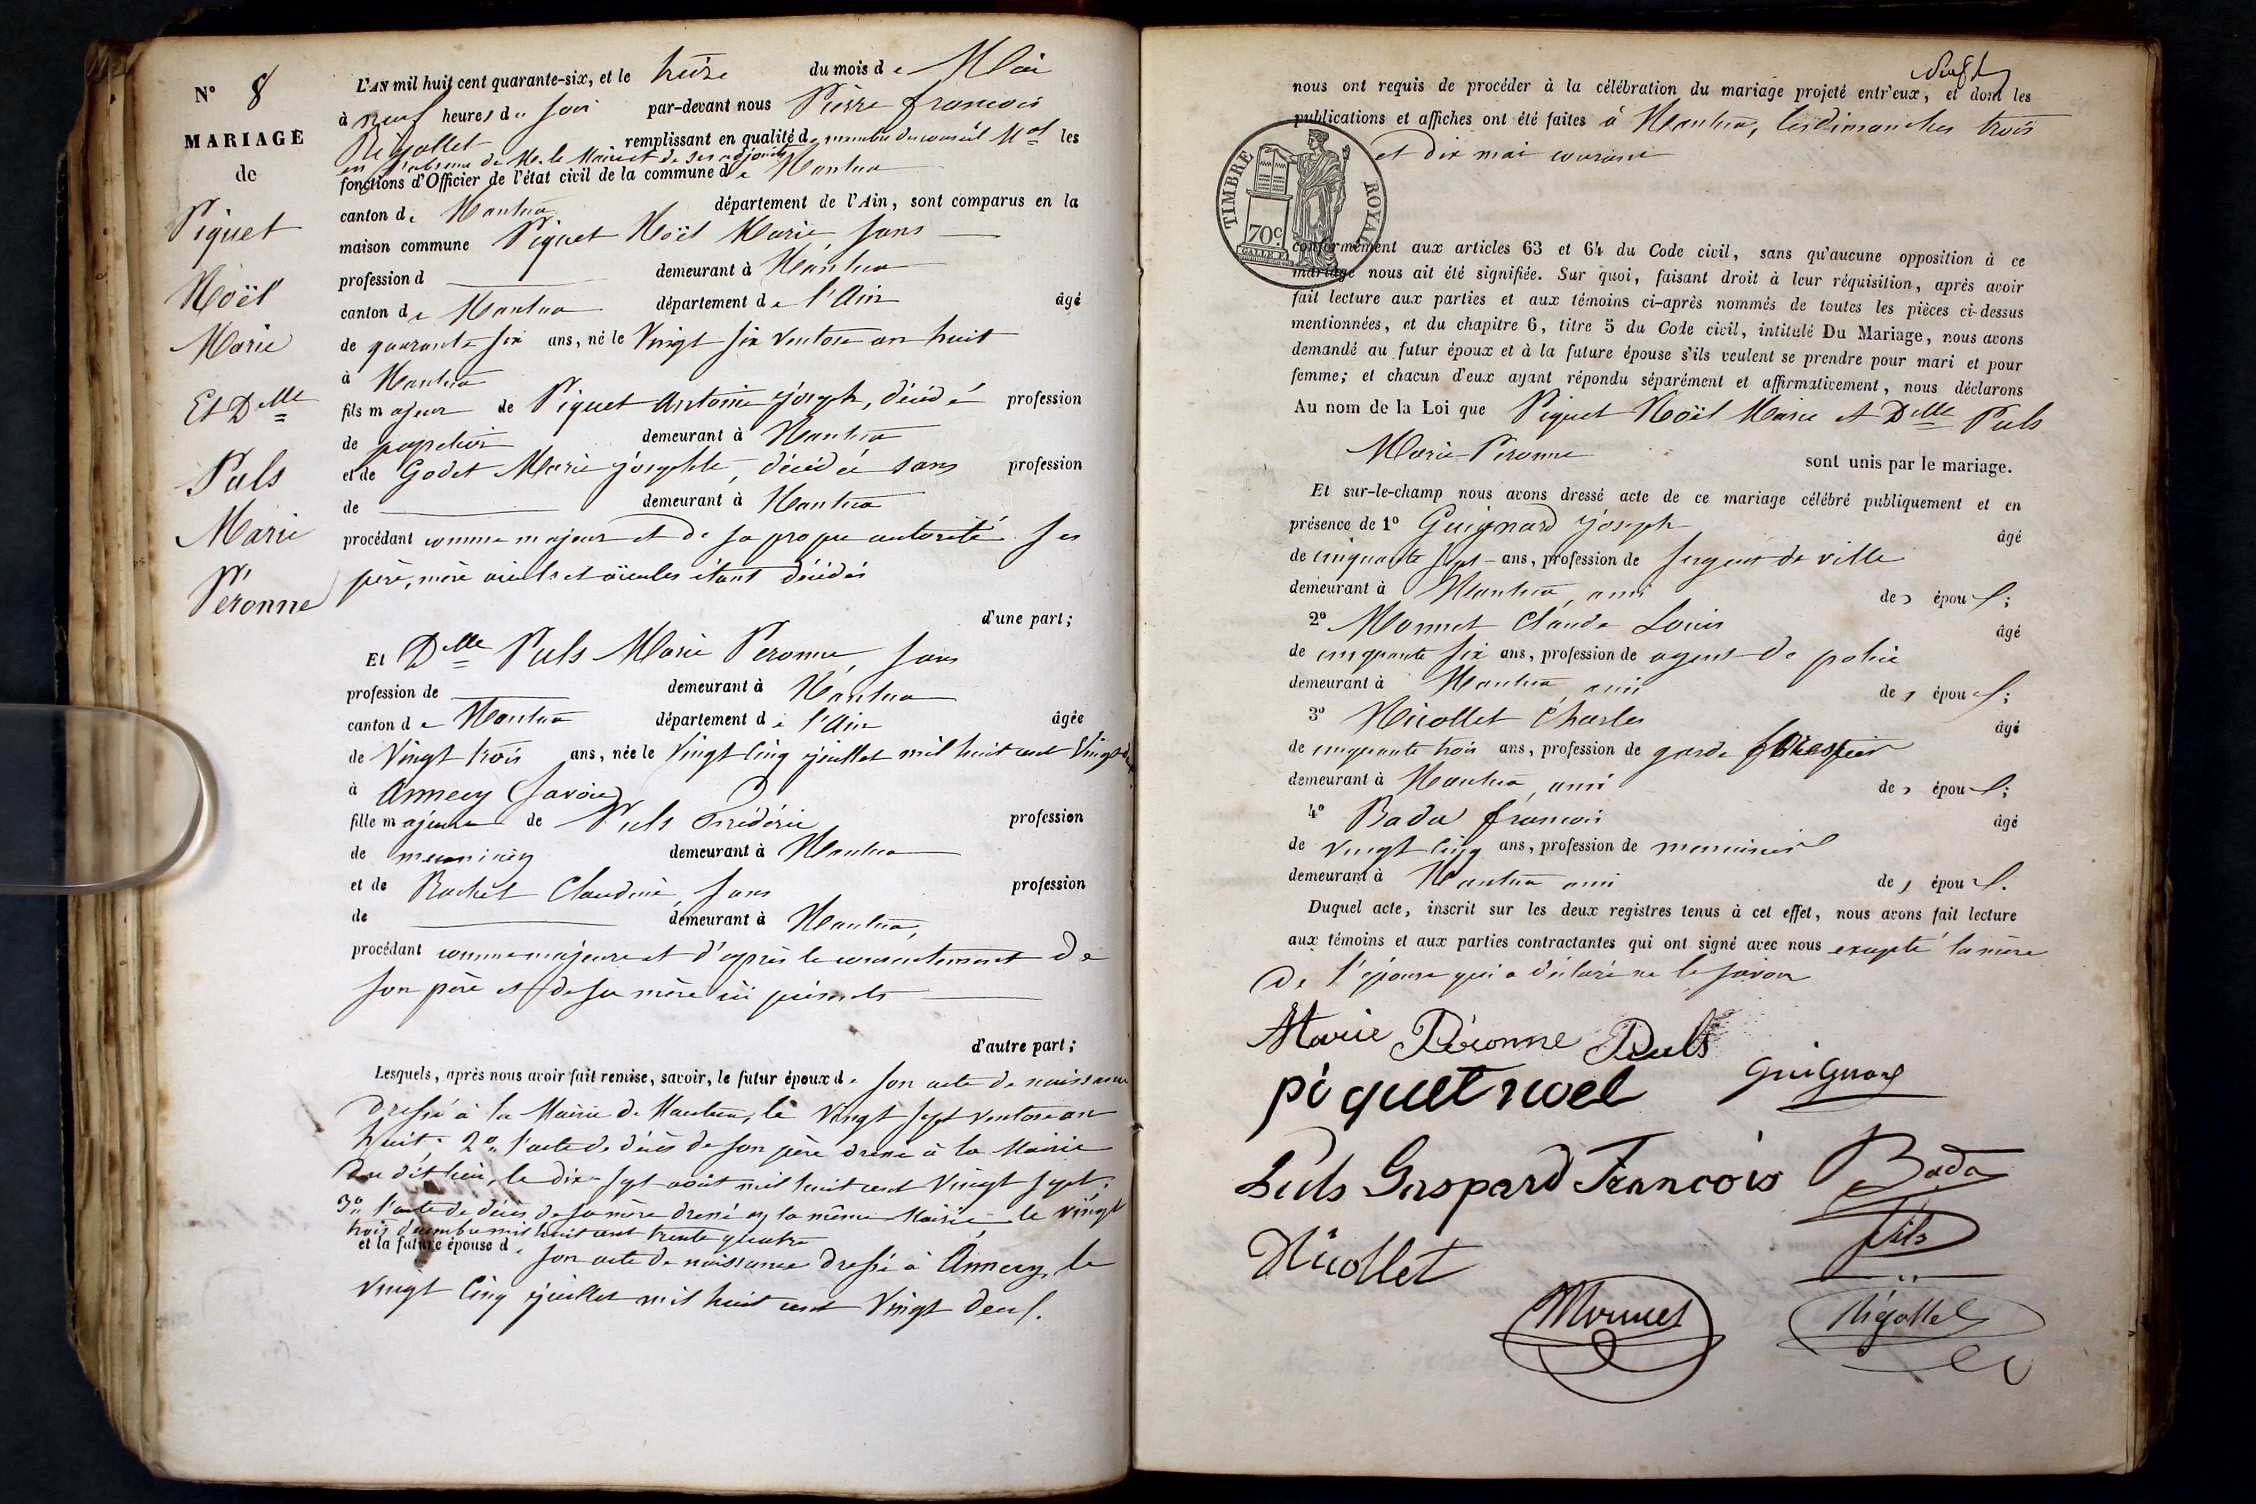 N° 8
MARIAGE
de
Piquet
Noël
Marie
Et Delle
Puls
Marie
Péronne
L'AN mil huit cent quarante-six, et le treize du mois de Mai
à neuf heures du soir par-devant nous Pierre françois
Régollet remplissant en qualité de membre du conseil Mal les
en l'absence de Mr. le Maire et de ses adjoints
fonctions d'Officier de l'état civil de la commune de Nantua
canton de Nantua département de l'Ain, sont comparus en la
maison commune Piquet Noël Marie, sans
profession d demeurant à Nantua
canton de Nantua département de l'Ain âgé
de quarante six ans, né le Vingt six Ventose an huit
à Nantua
fils majeur de Piquet Antoine joseph, décédé profession
de demeurant à Nantua
et de Godet Marie josephte, décédée sans profession
de demeurant à Nantua
procédant comme majeur et de sa propre autorité ses
père, mère aieuls et aïeules étant décédés
d'une part;
Et Delle Puls Marie Peronne, sans
profession de demeurant à Nantua
canton de Nantua département de l'Ain âgée
de Vingt trois ans, née le Vingt cinq juillet mil huit cent Vingt deux
à Annecy (Savoie)
fille majeure de Puls Frédéric profession
de demeurant à Nantua
et de Rochet Claudine, sans profession
de demeurant à Nantua,
procédant comme majeure et d'après le consentement de
son père et de sa mère ici présents
d'autre part;
Lesquels, après nous avoir fait remise, savoir, le futur époux de son acte de naissance
dressé à la Mairie de Nantua, le vingt sept ventose an
huit. 2° l'acte de décès de son père dressé à la Mairie
du dit lieu, le dix sept août mil huit cent vingt sept.
3° l'acte de décès de sa mère dressé en la même Mairie le vingt
trois décembre mil huit cent trente quatre
et la future épouse de son acte de naissance dressé à Annecy, le
vingt cinq juillet mil huit cent Vingt deux.
nous ont requis de procéder à la célébration du mariage projeté entr'eux, et dont les
publications et affiches ont été faites à Nantua, les dimanches trois
et dix mai courant
TIMBRE ROYAL
70c
conformément aux articles 63 et 64 du Code civil, sans qu'aucune opposition à ce
mariage nous ait été signifiée. Sur quoi, faisant droit à leur réquisition, après avoir
fait lecture aux parties et aux témoins ci-après nommés de toutes les pièces ci-dessus
mentionnées, et du chapitre 6, titre 5 du Code civil, intitulé Du Mariage, nous avons
demandé au futur époux et à la future épouse s'ils veulent se prendre pour mari et pour
femme; et chacun d'eux ayant répondu séparément et affirmativement, nous déclarons
Au nom de la Loi que Piquet Noël Marie et Delle Puls
Marie Peronne sont unis par le mariage.
Et sur-le-champ nous avons dressé acte de ce mariage célébré publiquement et en
présence de 1° Guignard joseph âgé
de cinquante sept ans, profession de sergent de ville
demeurant à Nantua, ami des époux;
2° Monnet Claude Louis âgé
de cinquante six ans, profession de agent de police
demeurant à Nantua, ami des époux;
3° Nicollet Charles âgé
de cinquante trois ans, profession de garde forestier
demeurant à Nantua, ami des époux;
4° Bada françois âgé
de vingt cinq ans, profession de menuisier
demeurant à Nantua ami des époux.
Duquel acte, inscrit sur les deux registres tenus à cet effet, nous avons fait lecture
aux témoins et aux parties contractantes qui ont signé avec nous excepté la mère
de l'épouse qui a déclaré ne le savoir
Marie Péronne Puls
piquet noel Guignard
Puls Gaspard François Bada
fils
Nicollet
Monnet Régollet